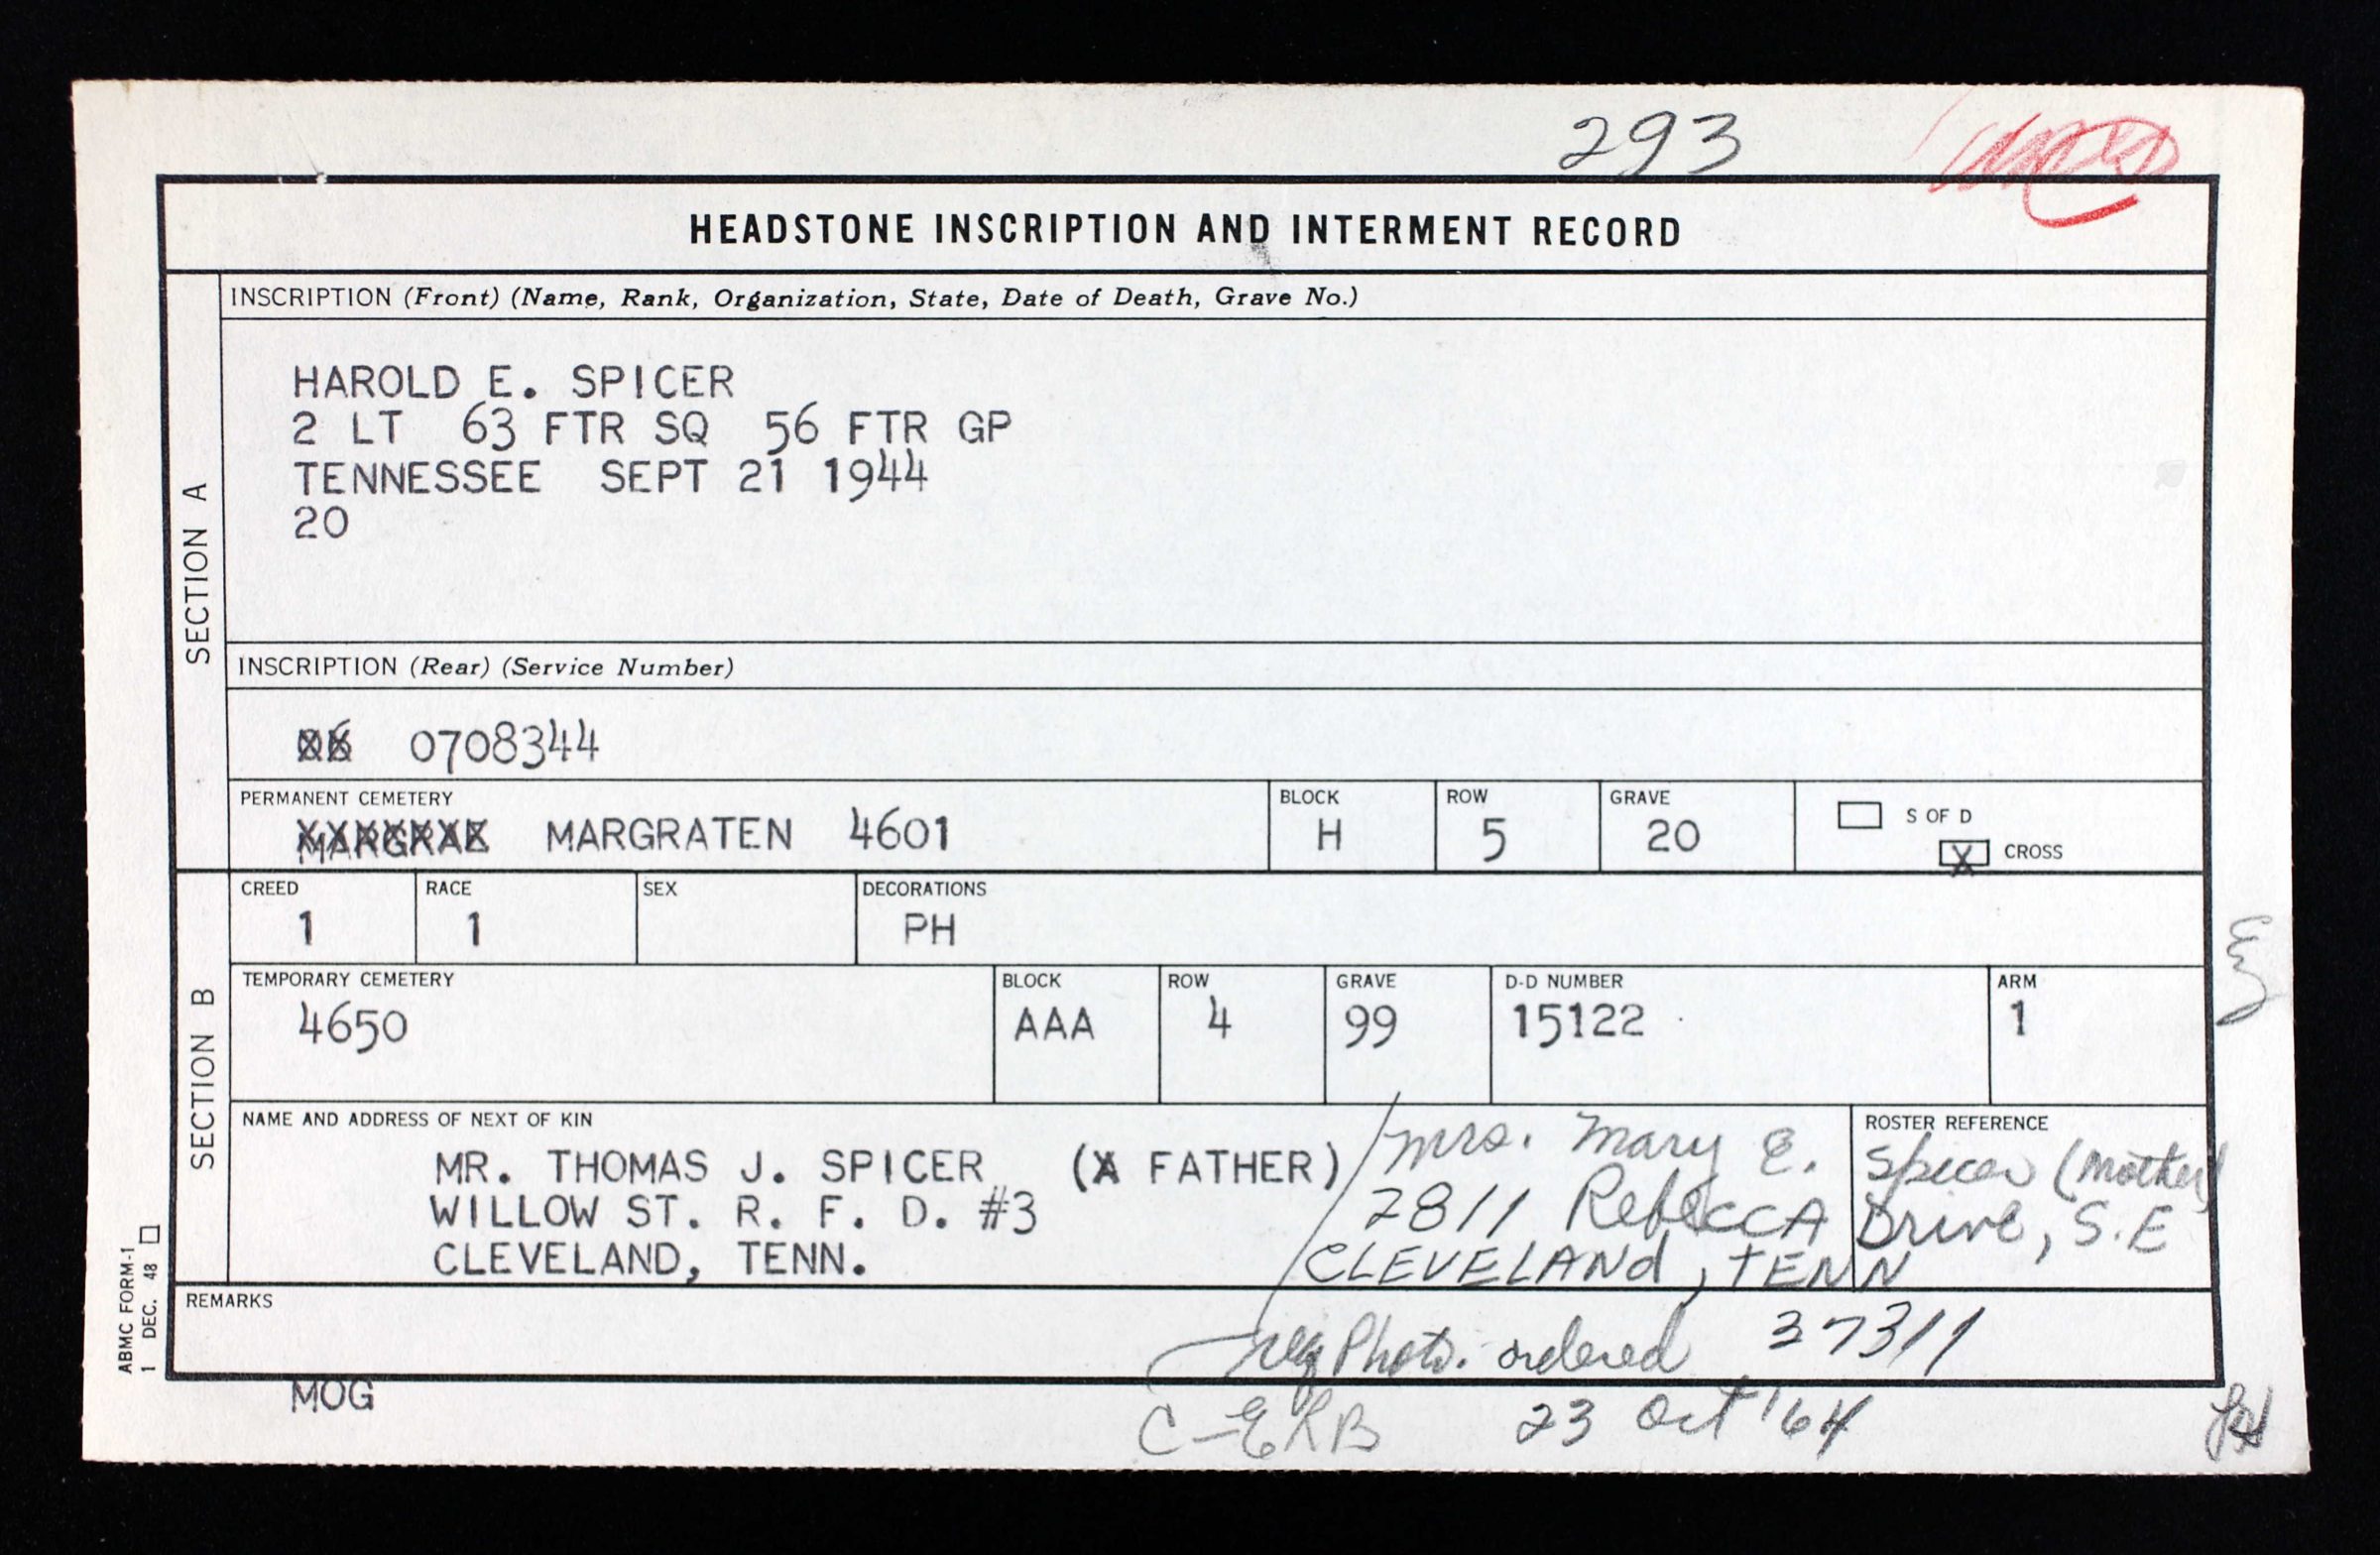 293
HEADSTONE INSCRIPTION AND INTERMENT RECORD
SECTION A
INSCRIPTION (Front) (Name, Rank, Organization, State, Date of Death, Grave No.)
HAROLD E. SPICER
2 LT 63 FTR SQ 56 FTR GP
TENNESSEE SEPT 21 1944
20
INSCRIPTION (Rear) (Service Number)
0708344
PERMANENT CEMETERY
MARGRATEN 4601
BLOCK
H
ROW
5
GRAVE
20
S OF D
X CROSS
SECTION B
CREED
1
RACE
1
SEX
DECORATIONS
PH
TEMPORARY CEMETERY
4650
BLOCK
AAA
ROW
4
GRAVE
99
D-D NUMBER
15122
ARM
1
NAME AND ADDRESS OF NEXT OF KIN
MR. THOMAS J. SPICER (X FATHER)
WILLOW ST. R. F. D. #3
CLEVELAND, TENN.
ROSTER REFERENCE
Mrs. Mary E. Spicer (Mother)
2811 RebeccA Drive, S.E
CLEVELANd, TENN
37311
REMARKS
Photo. ordered
23 Oct '64
MOG
ABMC FORM-1
1 DEC. 48